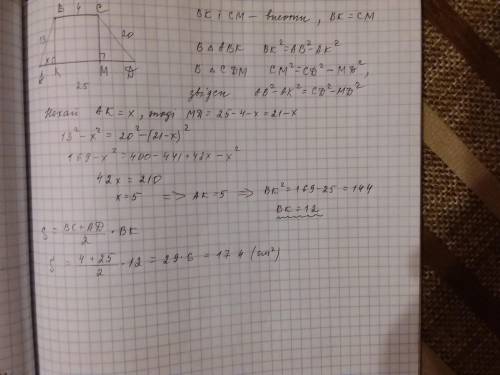 B 4 C
13 20
x
A K M D
25
BK і CM – висоти, BK = CM
В △ ABK BK² = AB² – AK²
В △ CDM CM² = CD² – MD²,
звідси AB² – AK² = CD² – MD²
Нехай AK = x, тоді MD = 25 – 4 – x = 21 – x
13² – x² = 20² – (21 – x)²
169 – x² = 400 – 441 + 42x – x²
42x = 210
x = 5 => AK = 5 => BK² = 169 – 25 = 144
BK = 12
S = (BC + AD)/2 · BK
S = (4 + 25)/2 · 12 = 29 · 6 = 174 (см²)